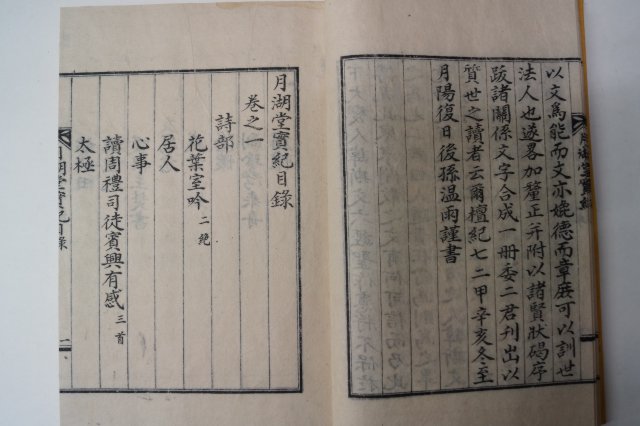 以文爲能而文亦婉德而章庶可以訓世
法人也遂畧加釐正并附以諸賢狀碣序
跋諸關係文字合成一册委二君刋出以
質世之讀者云爾檀紀七二甲辛亥冬至
月陽復日後孫溫雨謹書
月湖堂實紀
月湖堂實紀目錄
卷之一
詩部
花葉室吟 二絶
居人
心事
讀周禮司徒賓興有感 三首
太極
月湖堂實紀目錄 一